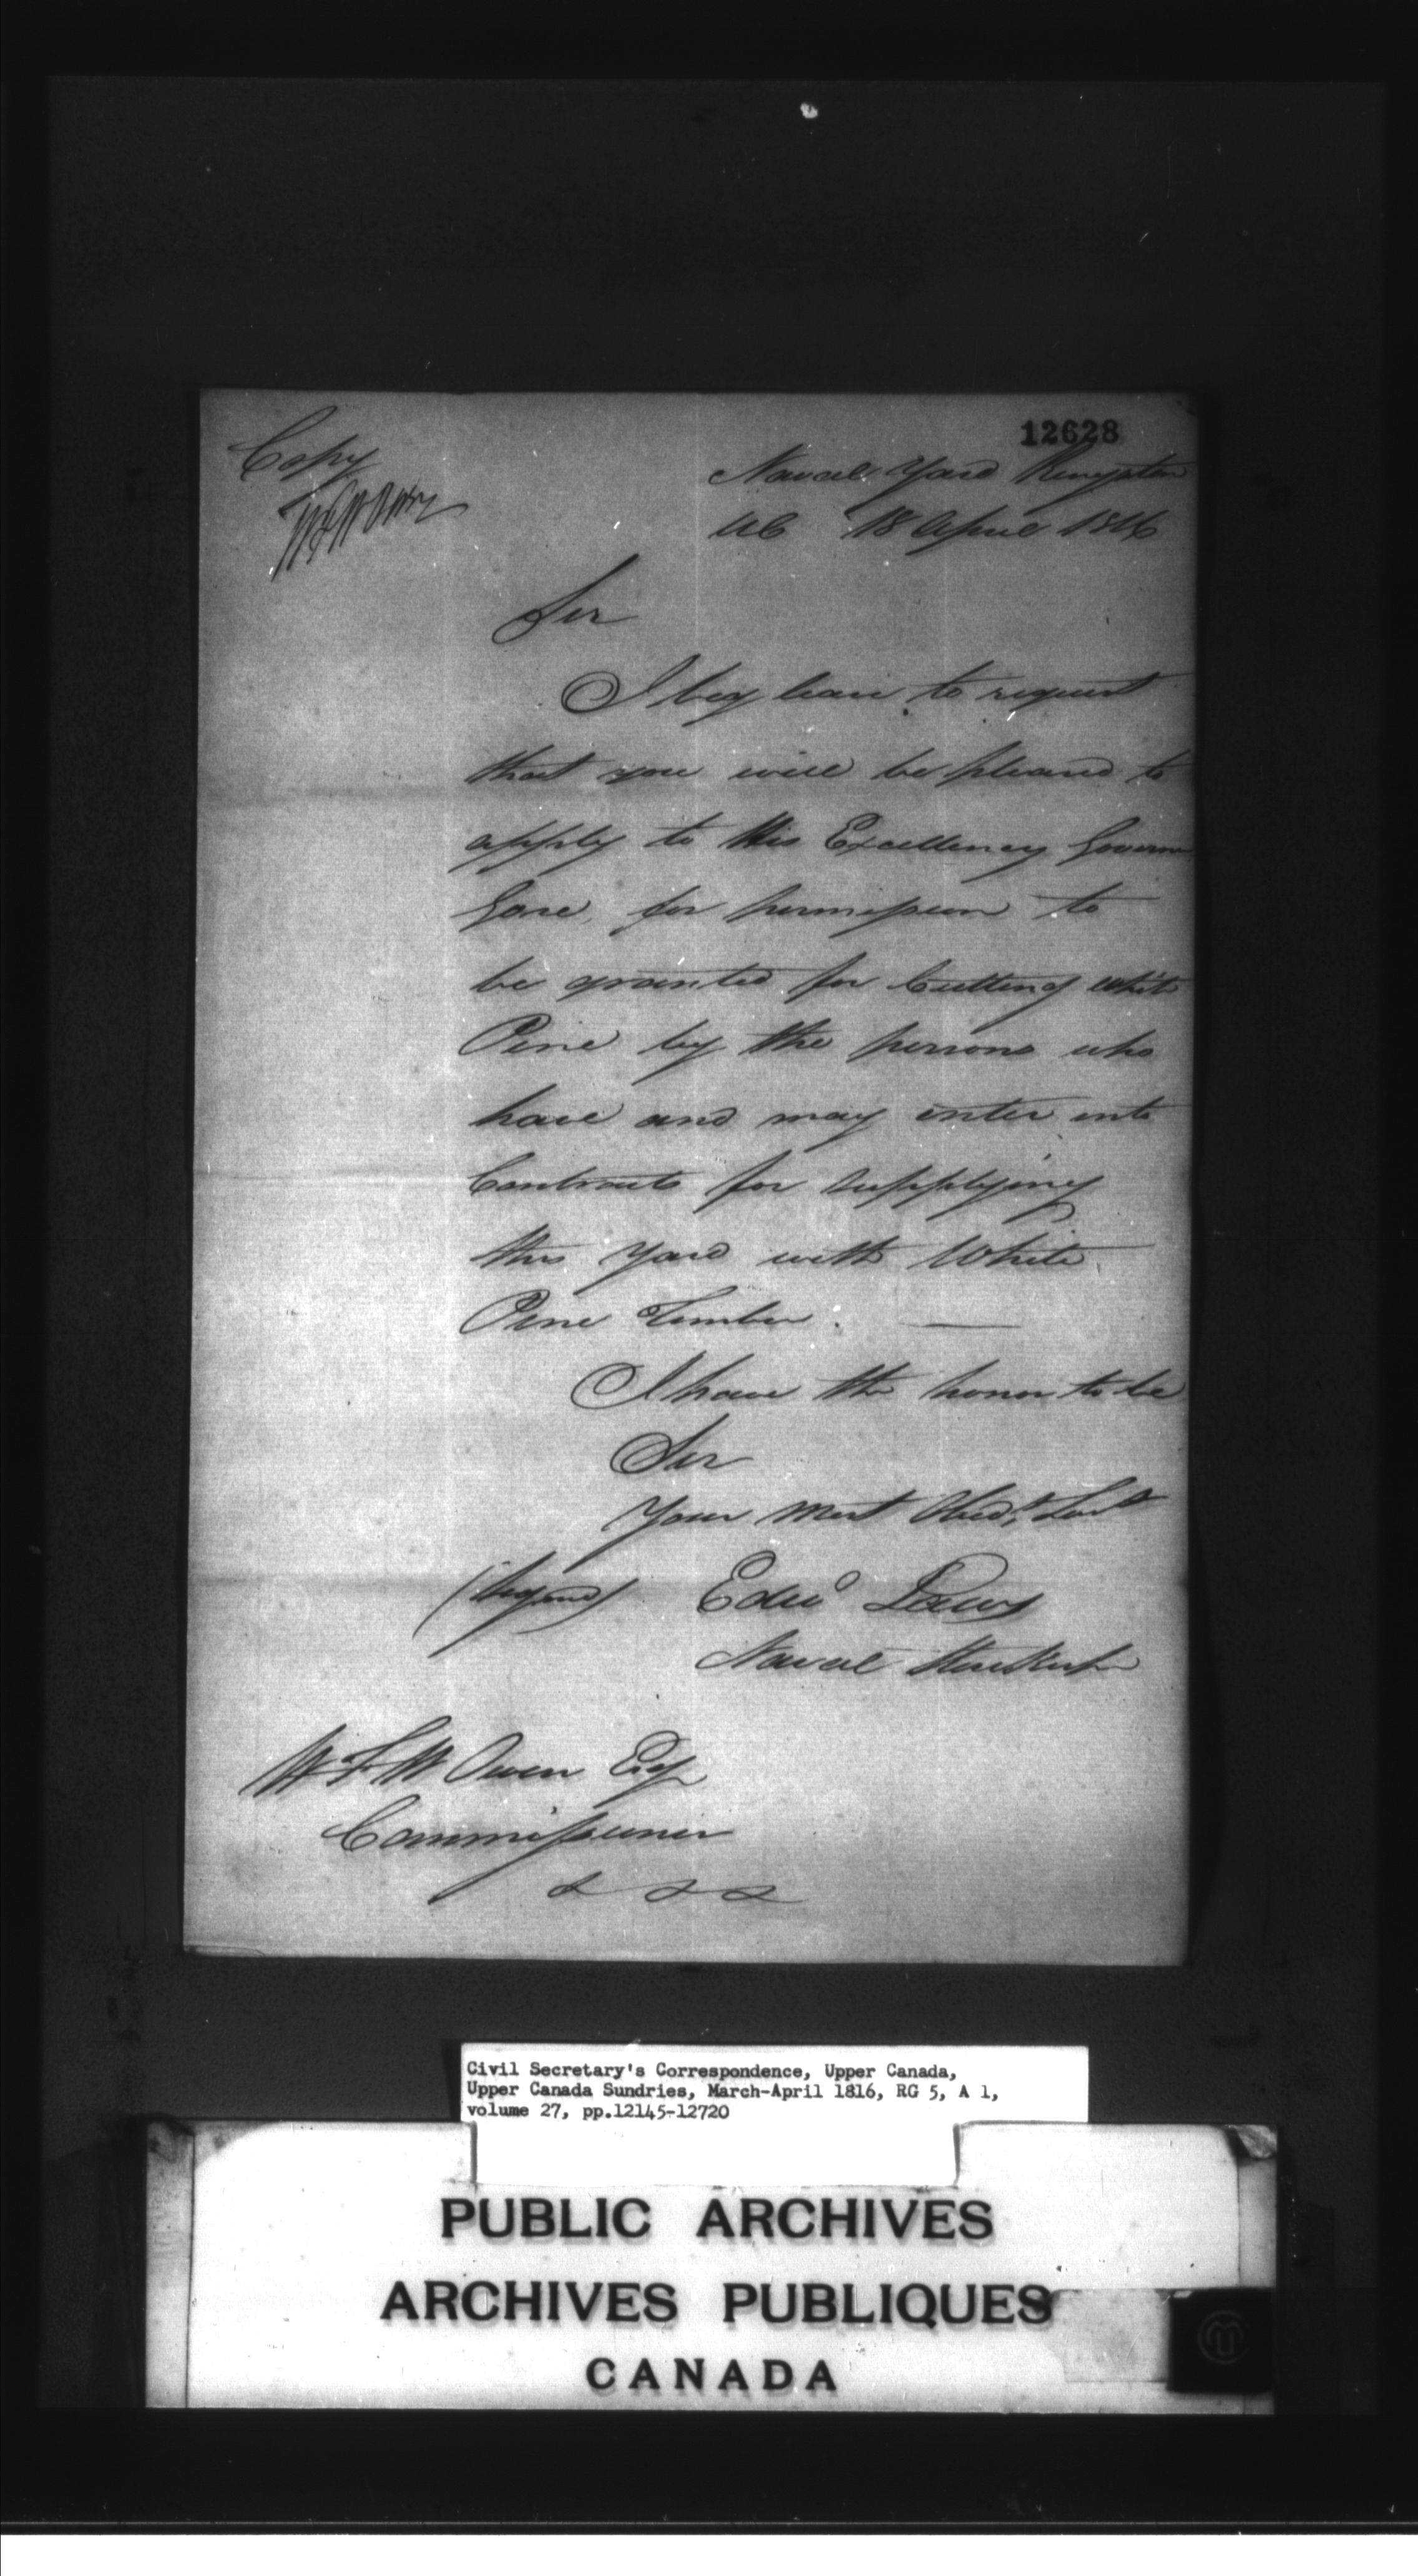 12628
Copy
WFWOwen
Naval Yard Kingston
UC 18 April 1816
Sir
I beg leave to request
that you will be pleased to
apply to His Excellency Governor
Gore, for permission to
be granted for Cutting White
Pine by the persons who
have and may enter into
Contracts for supplying
this Yard with White
Pine Timber. —
I have the honor to be
Sir
Your Most Obedt. Servt
(Signed) Edwd Laws
Naval Storekeeper
W F W Owen Esqr
Commissioner
& & &
Civil Secretary's Correspondence, Upper Canada,
Upper Canada Sundries, March-April 1816, RG 5, A 1,
volume 27, pp.12145-12720
PUBLIC ARCHIVES
ARCHIVES PUBLIQUES
CANADA